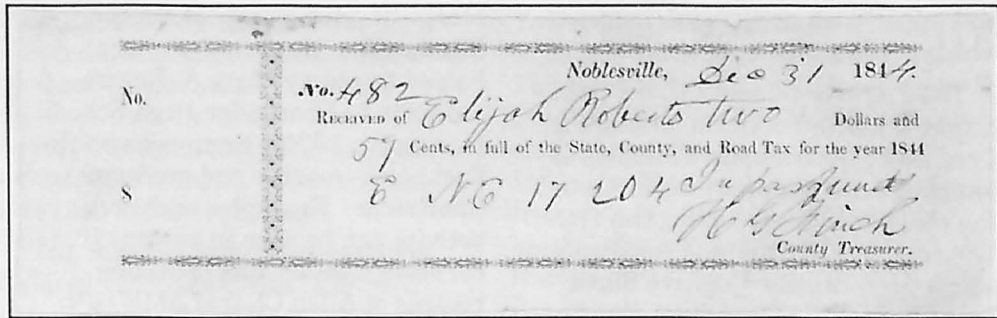 Noblesville, Dec 31 1844.
No.
No. 482
RECEIVED of Elijah Roberts two Dollars and
57 Cents, in full of the State, County, and Road Tax for the year 1844
$ E NE 17 20 4
County Treasurer.